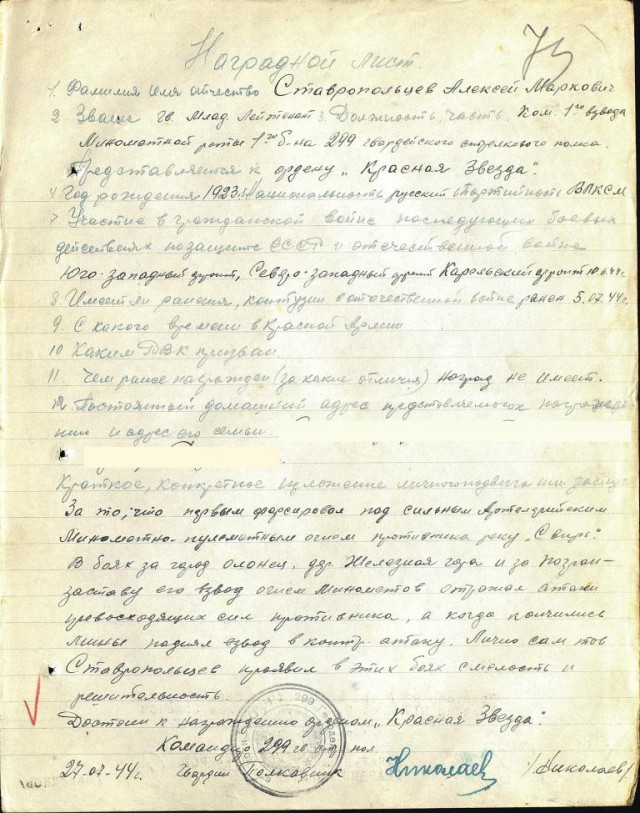 73
Наградной лист.
1. Фамилия имя отчество Ставропольцев Алексей Маркович
2 Звание гв. Млад. Лейтенант 3. Должность, часть. Ком. 1го взвода
Минометной роты 1го б-на 299 гвардейского стрелкового полка.
Представляется к ордену „Красная Звезда".
4 Год рождения 1923. 5 Национальность русский 6 Партийность ВЛКСМ
7 Участие в гражданской войне последующих боевых
действиях по защите СССР и отечественной войне
Юго-западный фронт, Северо-западный фронт Карельский фронт
8. Имеет ли ранения, контузии в отечественной войне ранен 5.07.44г.
9. С какого времени в Красной Армии
10 Каким РВК призван
11. Чем ранее награжден (за какие отличия) наград не имеет.
12. Постоянный домашний адрес представляемого к награжде
нию и адрес его семьи
Краткое, конкретное изложение личного подвига или заслуг
За то, что первым форсировал под сильным Артеллрийским
Минометно-пулеметным огнем противника реку „Свирь".
В боях за город Олонец, дер. Железная гора и за погран-
заставу его взвод огнем Минометов отражал атаки
превосходящих сил противника, а когда кончились
мины поднял взвод в контр. атаку. Лично сам тов
Ставропольцев проявил в этих боях смелость и
решительность.
Достоин к награждению орденом „Красная Звезда".
Командир 299 гв. стр. пол.
27.07.44г. Гвардии Полковник Николаев /Николаев/